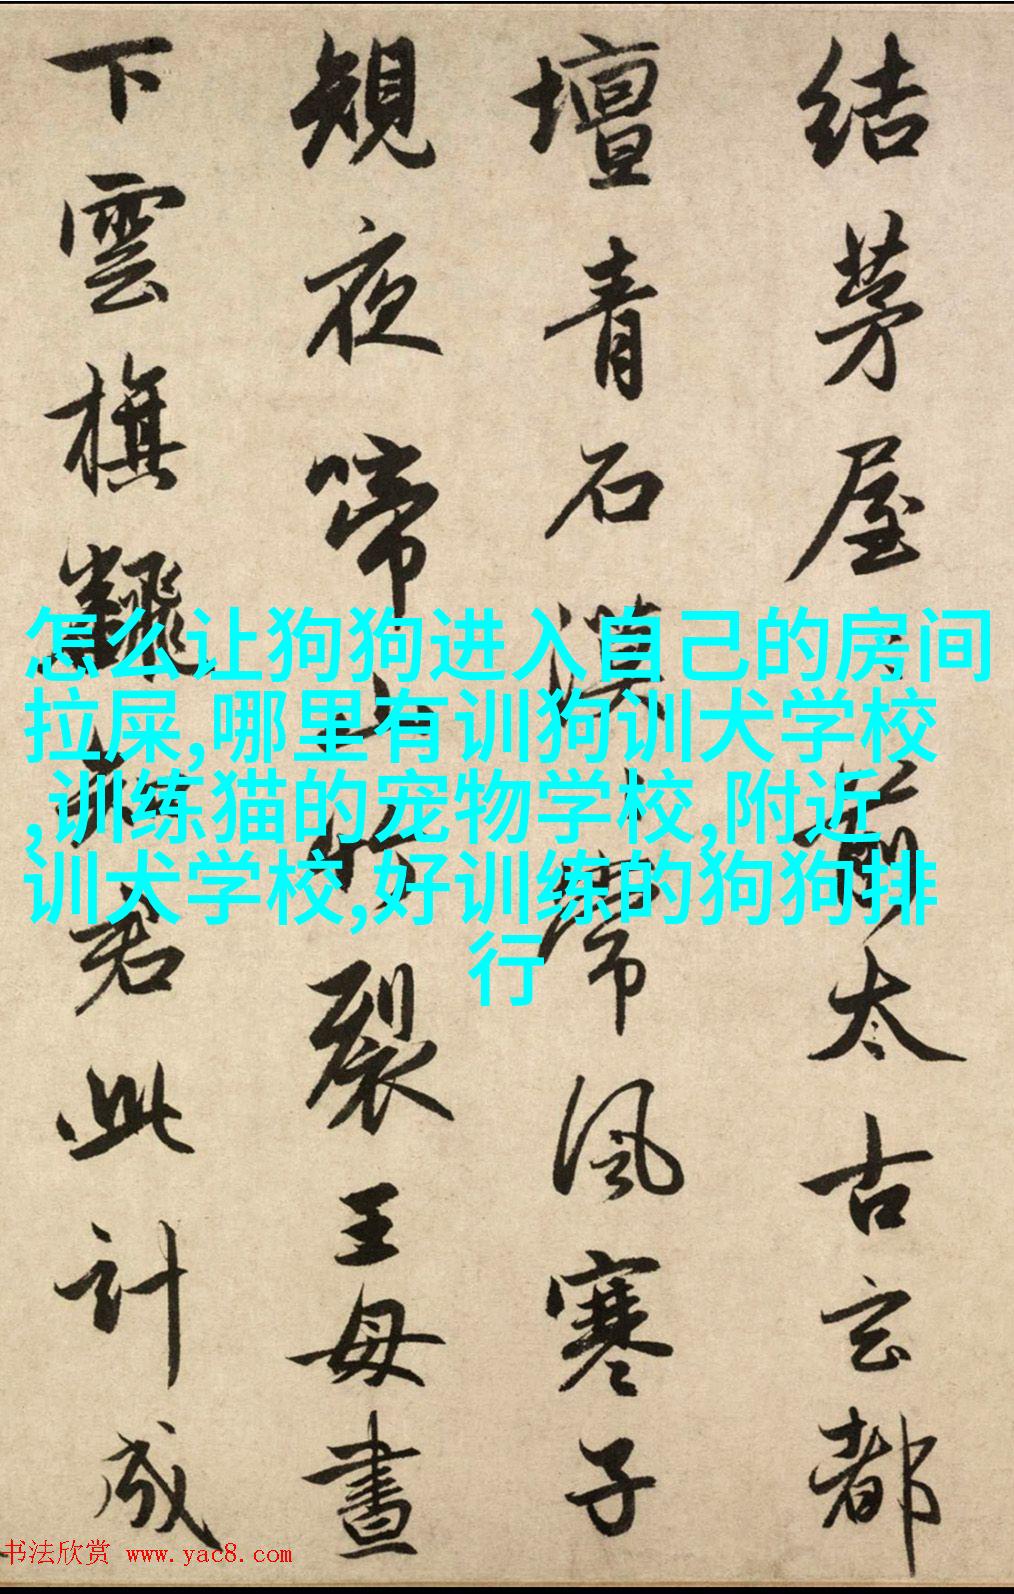 結茅屋〻前太古玄都
壇青石漠〻常風寒子
規夜啼山竹裂王母晝
下雲旗飜知君此計成
怎么让狗狗进入自己的房间
拉屎,哪里有训狗训犬学校
,训练猫的宠物学校,附近
训犬学校,好训练的狗狗排
行
书法欣赏 www.yac8.com